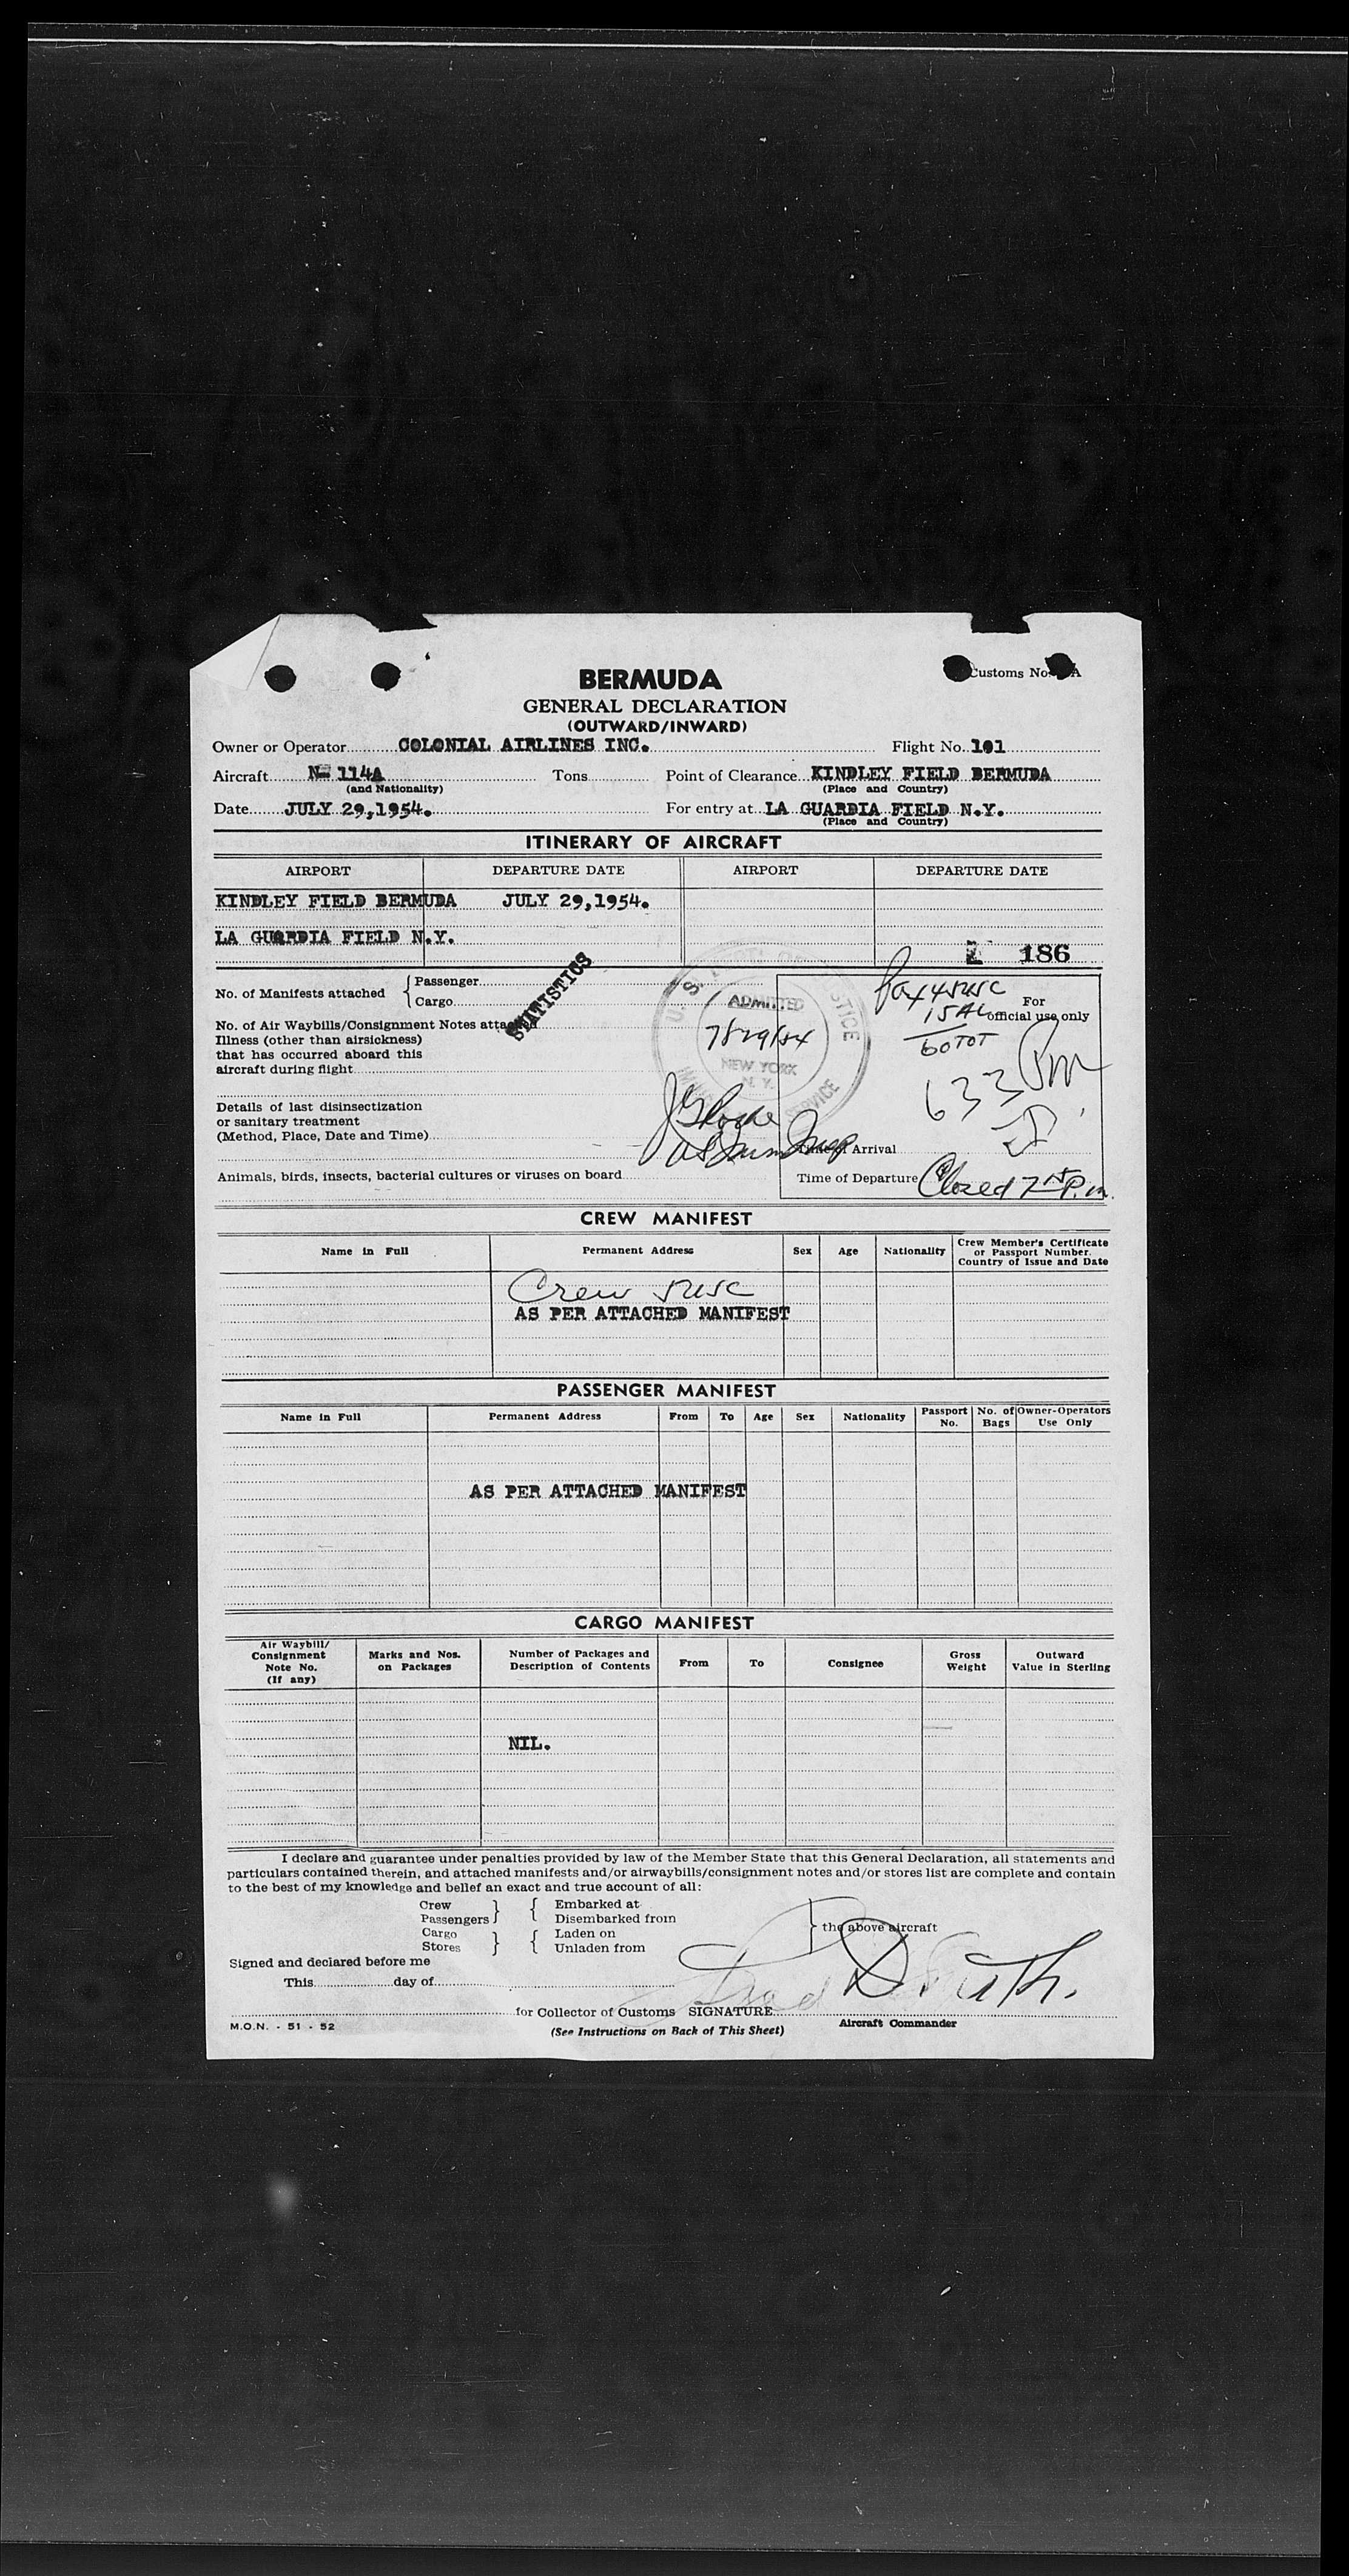 Customs No. A
BERMUDA
GENERAL DECLARATION
(OUTWARD/INWARD)
Owner or Operator COLONIAL AIRLINES INC. Flight No. 101
Aircraft N- 114A Tons Point of Clearance KINDLEY FIELD BERMUDA
(and Nationality) (Place and Country)
Date JULY 29,1954. For entry at LA GUARDIA FIELD N.Y.
(Place and Country)
ITINERARY OF AIRCRAFT
AIRPORT DEPARTURE DATE AIRPORT DEPARTURE DATE
KINDLEY FIELD BERMUDA JULY 29,1954.
LA GUARDIA FIELD N.Y.
186
No. of Manifests attached { Passenger
Cargo
STATISTICS
ADMITTED
7/29/54
NEW YORK
N. Y.
SERVICE
Pax 45 USC
15 AL
60 TOT
For
official use only
633 Pm
No. of Air Waybills/Consignment Notes attached
Illness (other than airsickness)
that has occurred aboard this
aircraft during flight
Details of last disinsectization
or sanitary treatment
(Method, Place, Date and Time)
Time of Arrival
Animals, birds, insects, bacterial cultures or viruses on board
Time of Departure Closed 7 15 P.m.
CREW MANIFEST
Name in Full Permanent Address Sex Age Nationality Crew Member's Certificate
or Passport Number.
Country of Issue and Date
Crew 5 USC
AS PER ATTACHED MANIFEST
PASSENGER MANIFEST
Name in Full Permanent Address From To Age Sex Nationality Passport No. No. of Bags Owner-Operators Use Only
AS PER ATTACHED MANIFEST
CARGO MANIFEST
Air Waybill/ Consignment Note No. (If any) Marks and Nos. on Packages Number of Packages and Description of Contents From To Consignee Gross Weight Outward Value in Sterling
NIL.
I declare and guarantee under penalties provided by law of the Member State that this General Declaration, all statements and
particulars contained therein, and attached manifests and/or airwaybills/consignment notes and/or stores list are complete and contain
to the best of my knowledge and belief an exact and true account of all:
Crew } { Embarked at
Passengers } { Disembarked from
Cargo } { Laden on } the above aircraft
Stores } { Unladen from
Signed and declared before me
This day of
for Collector of Customs SIGNATURE
M.O.N. - 51 - 52 (See Instructions on Back of This Sheet) Aircraft Commander